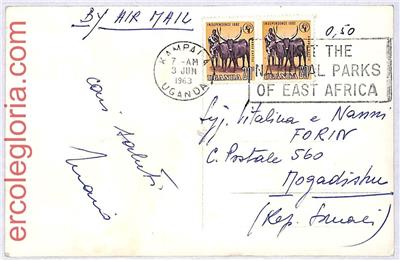 BY AIR MAIL
INDEPENDENCE 1962
INDEPENDENCE 1962
0,50
UGANDA
KAMPALA
7 - AM
3 JUN
1963
UGANDA
VISIT THE
NATIONAL PARKS
OF EAST AFRICA
cari saluti
Sgg. Vitalina e Nanni
FORIN
C. Postale 560
Mogadishu
(Rep. Somali)
ercolegloria.com